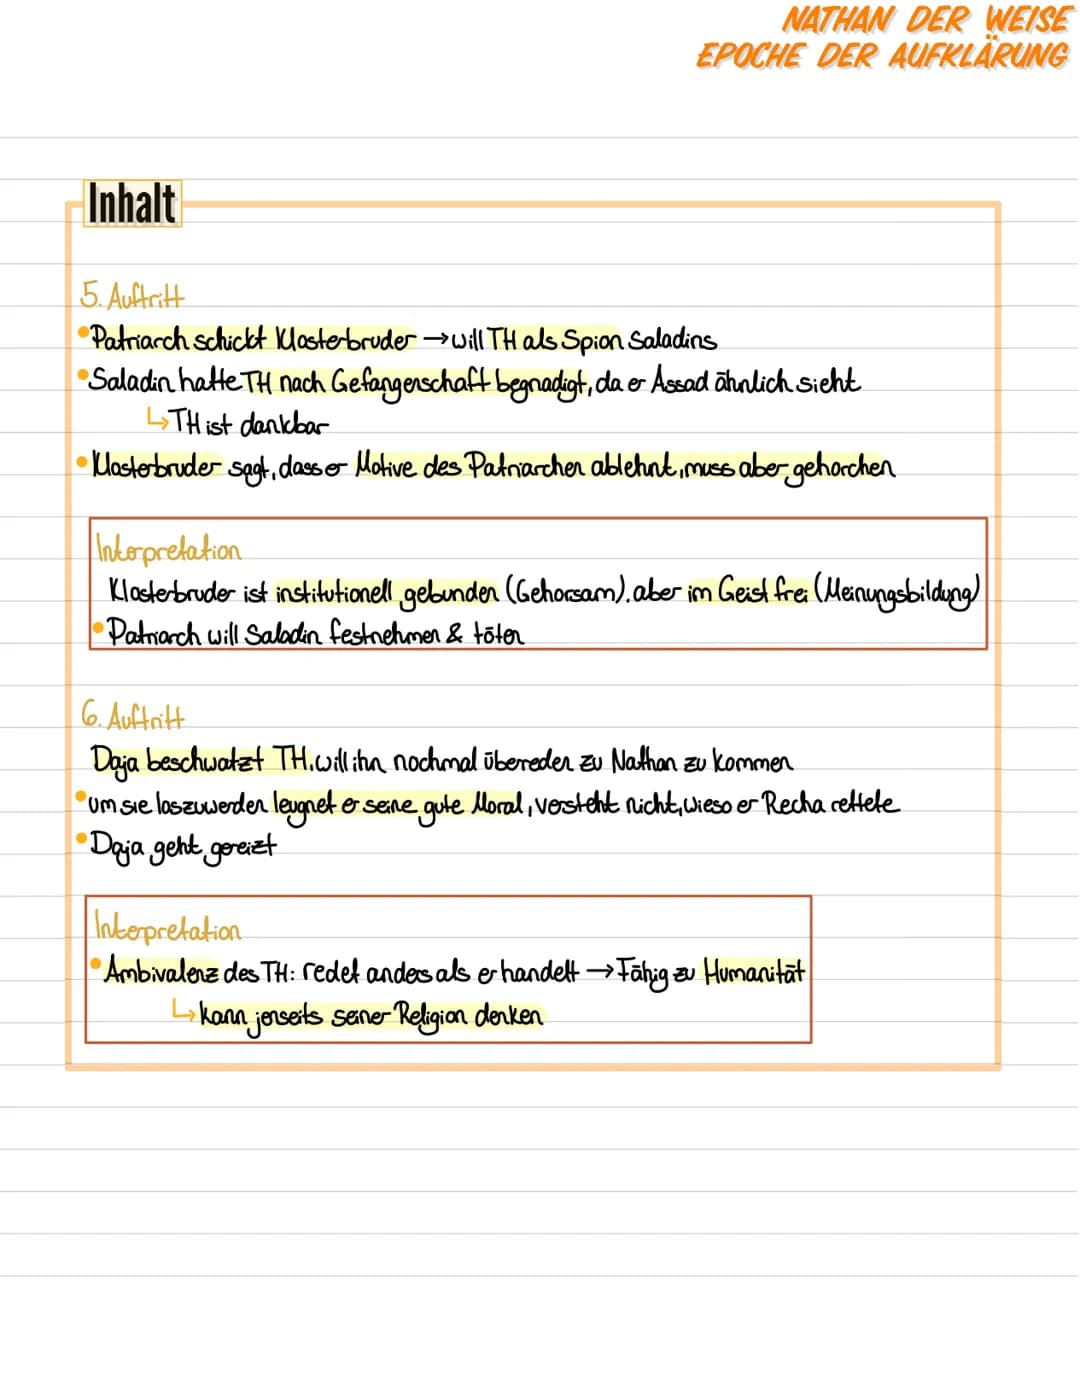 NATHAN DER WEISE
EPOCHE DER AUFKLÄRUNG
Inhalt
5. Auftritt
•Patriarch schickt Klosterbruder →will TH als Spion Saladins
•Saladin hatte TH nach Gefangenschaft begnadigt, da er Assad ähnlich sieht
↳TH ist dankbar
•Klosterbruder sagt, dass er Motive des Patriarchen ablehnt, muss aber gehorchen
Interpretation
Klosterbruder ist institutionell gebunden (Gehorsam), aber im Geist frei (Meinungsbildung)
•Patriarch will Saladin festnehmen & töten
6. Auftritt
Daja beschwatzt TH, will ihn nochmal übereden zu Nathan zu kommen
•um sie loszuwerden leugnet er seine gute Moral, versteht nicht, wieso er Recha rettete
•Daja geht gereizt
Interpretation
•Ambivalenz des TH: redet anders als er handelt →Fähig zu Humanität
↳kann jenseits seiner Religion denken